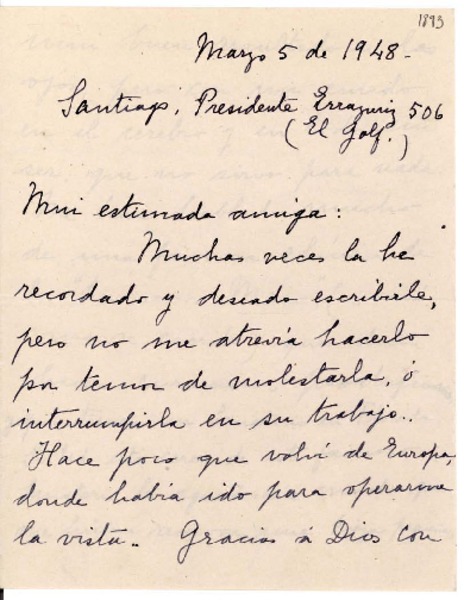 1893
Marzo 5 de 1948-
Santiago, Presidente Errazuriz 506
(El Golf.)
Mui estimada amiga:
Muchas veces la he
recordado y deseado escribirle,
pero no me atrevía hacerlo
por temor de molestarla, ó
interrumpirla en su trabajo..
Hace poco que volví de Europa,
donde había ido para operarme
la vista.. Gracias á Dios con